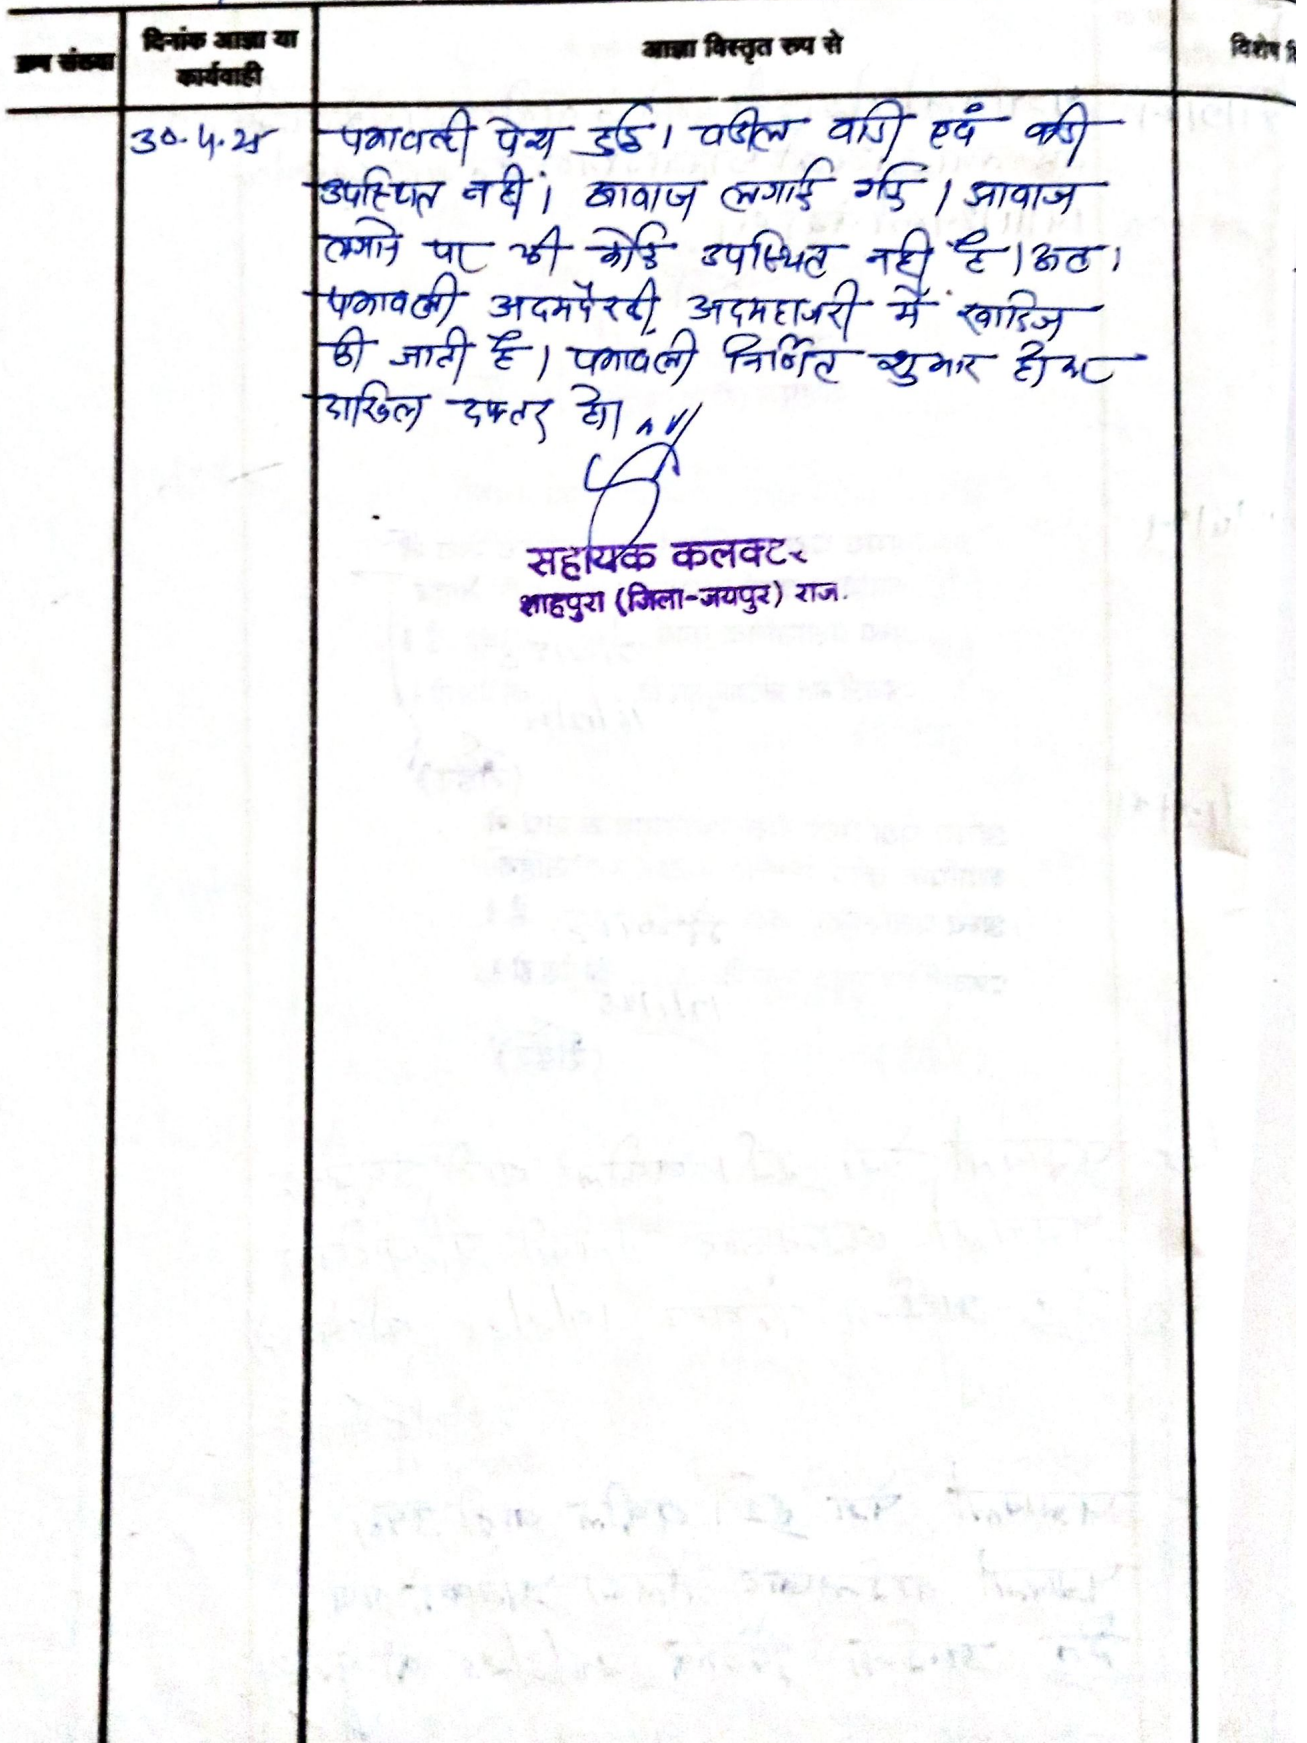 क्रम संख्या
दिनांक आज्ञा या
कार्यवाही
आज्ञा विस्तृत रूप से
विशेष
30.4.25
पत्रावली पेश हुई। वकील वादी एवं वादी
उपस्थित नहीं। आवाज लगाई गई। आवाज
लगाने पर भी कोई उपस्थित नहीं है। अतः
पत्रावली अदमपैरवी, अदमहाजरी में खारिज
की जाती है। पत्रावली निर्णित शुमार होकर
दाखिल दफ्तर हो।
सहायक कलक्टर
शाहपुरा (जिला-जयपुर) राज.